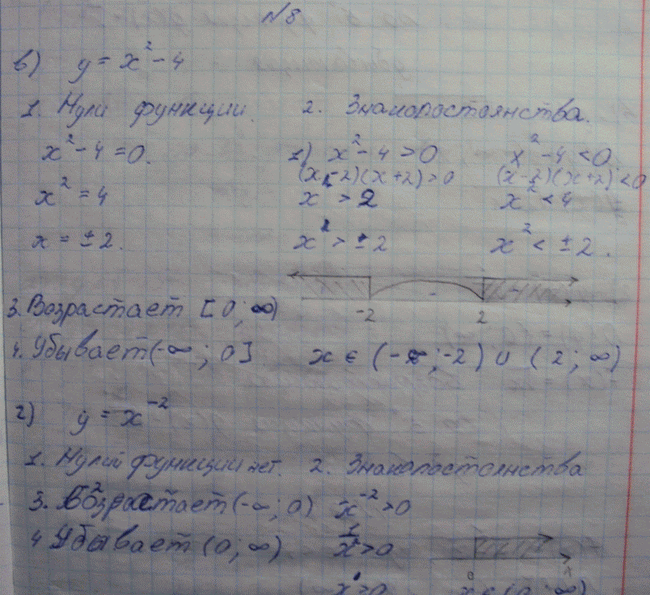 №8
в) y = x² - 4
1. Нули функции. 2. Знакопостоянства.
x² - 4 = 0. 1) x² - 4 > 0 x² - 4 < 0
(x - 2)(x + 2) > 0 (x - 2)(x + 2) < 0
x² = 4 x > 2 x² < 4
x = ± 2. x² > ± 2 x² < ± 2.
-
3. Возрастает [0; ∞) -2 2
4. Убывает (-∞; 0] x ∈ (-∞; -2) ∪ (2; ∞)
г) y = x⁻²
1. Нулей функции нет. 2. Знакопостоянства
3. Возрастает (-∞; 0) x⁻² > 0
4 Убывает (0; ∞) > 0
0
x > 0 x ∈ (0; ∞)